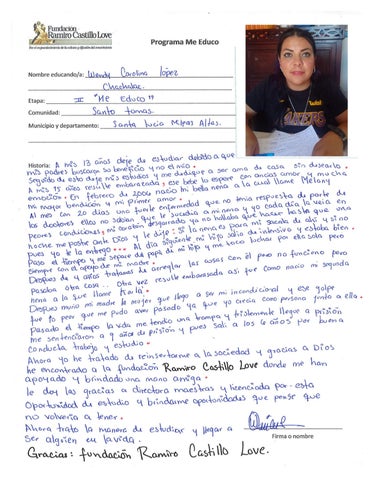 Fundación
Ramiro Castillo Love
Programa Me Educo
Nombre educando/a: Wendy Carolina lópez
Chachalac.
Etapa: II "ME Educo"
Comunidad: Santo tomas.
Municipio y departamento: Santa Lucia Milpas Altas.
Historia: A mis 13 años deje de estudiar debido a que
mis padres buscaron su beneficio y no el mio.
Seguido de esto deje mis estudios y me dedique a ser ama de casa sin desearlo.
A mis 15 años resulte embarazada, ese bebe lo espere con ansias amor y mucha
emoción. En febrero de 2006 nacio mi bella nena a la cual llame Melany
mi mayor bendición y mi Primer amor.
Al mes con 20 dias una fuerte enfermedad que no tenia respuesta de parte de
los doctores ellos no sabian que le sucedia a mi nena y yo cada dia la veia en
peores condiciones, mi corazón desgarrado ya no hallaba que hacer hasta que una
noche me postre ante Dios y le dije: si la nena es para mi sacala de ahi y sino
pues yo te la entrego... Al dia siguiente mi hija salio de intensivo y estaba bien.
Paso el tiempo y me separe del papá de mi hija y me toco luchar por ella sola pero
siempre con el apoyo de mi madre.
Despues de 4 años tratamos de arreglar las cosas con él pero no funciono pero
pasaba otra cosa.. Otra vez resulte embarazada asi fue como nacio mi segunda
nena a la que llame Karla.
Despues murio mi madre la mujer que llego a ser mi incondicional y ese golpe
fue lo peor que me pudo aver pasado ya que yo crecia como persona junto a ella.
Pasado el tiempo la vida me tendio una trampa y tristemente llegue a prisión
me sentenciaron a 9 años de prisión y pues sali a los 6 años por buena
conducta trabajo y estudio.
Ahora yo he tratado de reinsertarme a la sociedad y gracias a Dios
he encontrado a la fundación Ramiro Castillo Love donde me han
apoyado y brindado una mano amiga.
le doy las gracias a directora maestras y licenciada por esta
Oportunidad de estudio y brindarme oportunidades que pense que
no volveria a tener.
Ahora trato la manera de estudiar y llegar a
Ser alguien en la vida.
Firma o nombre
Gracias: fundación Ramiro Castillo Love.